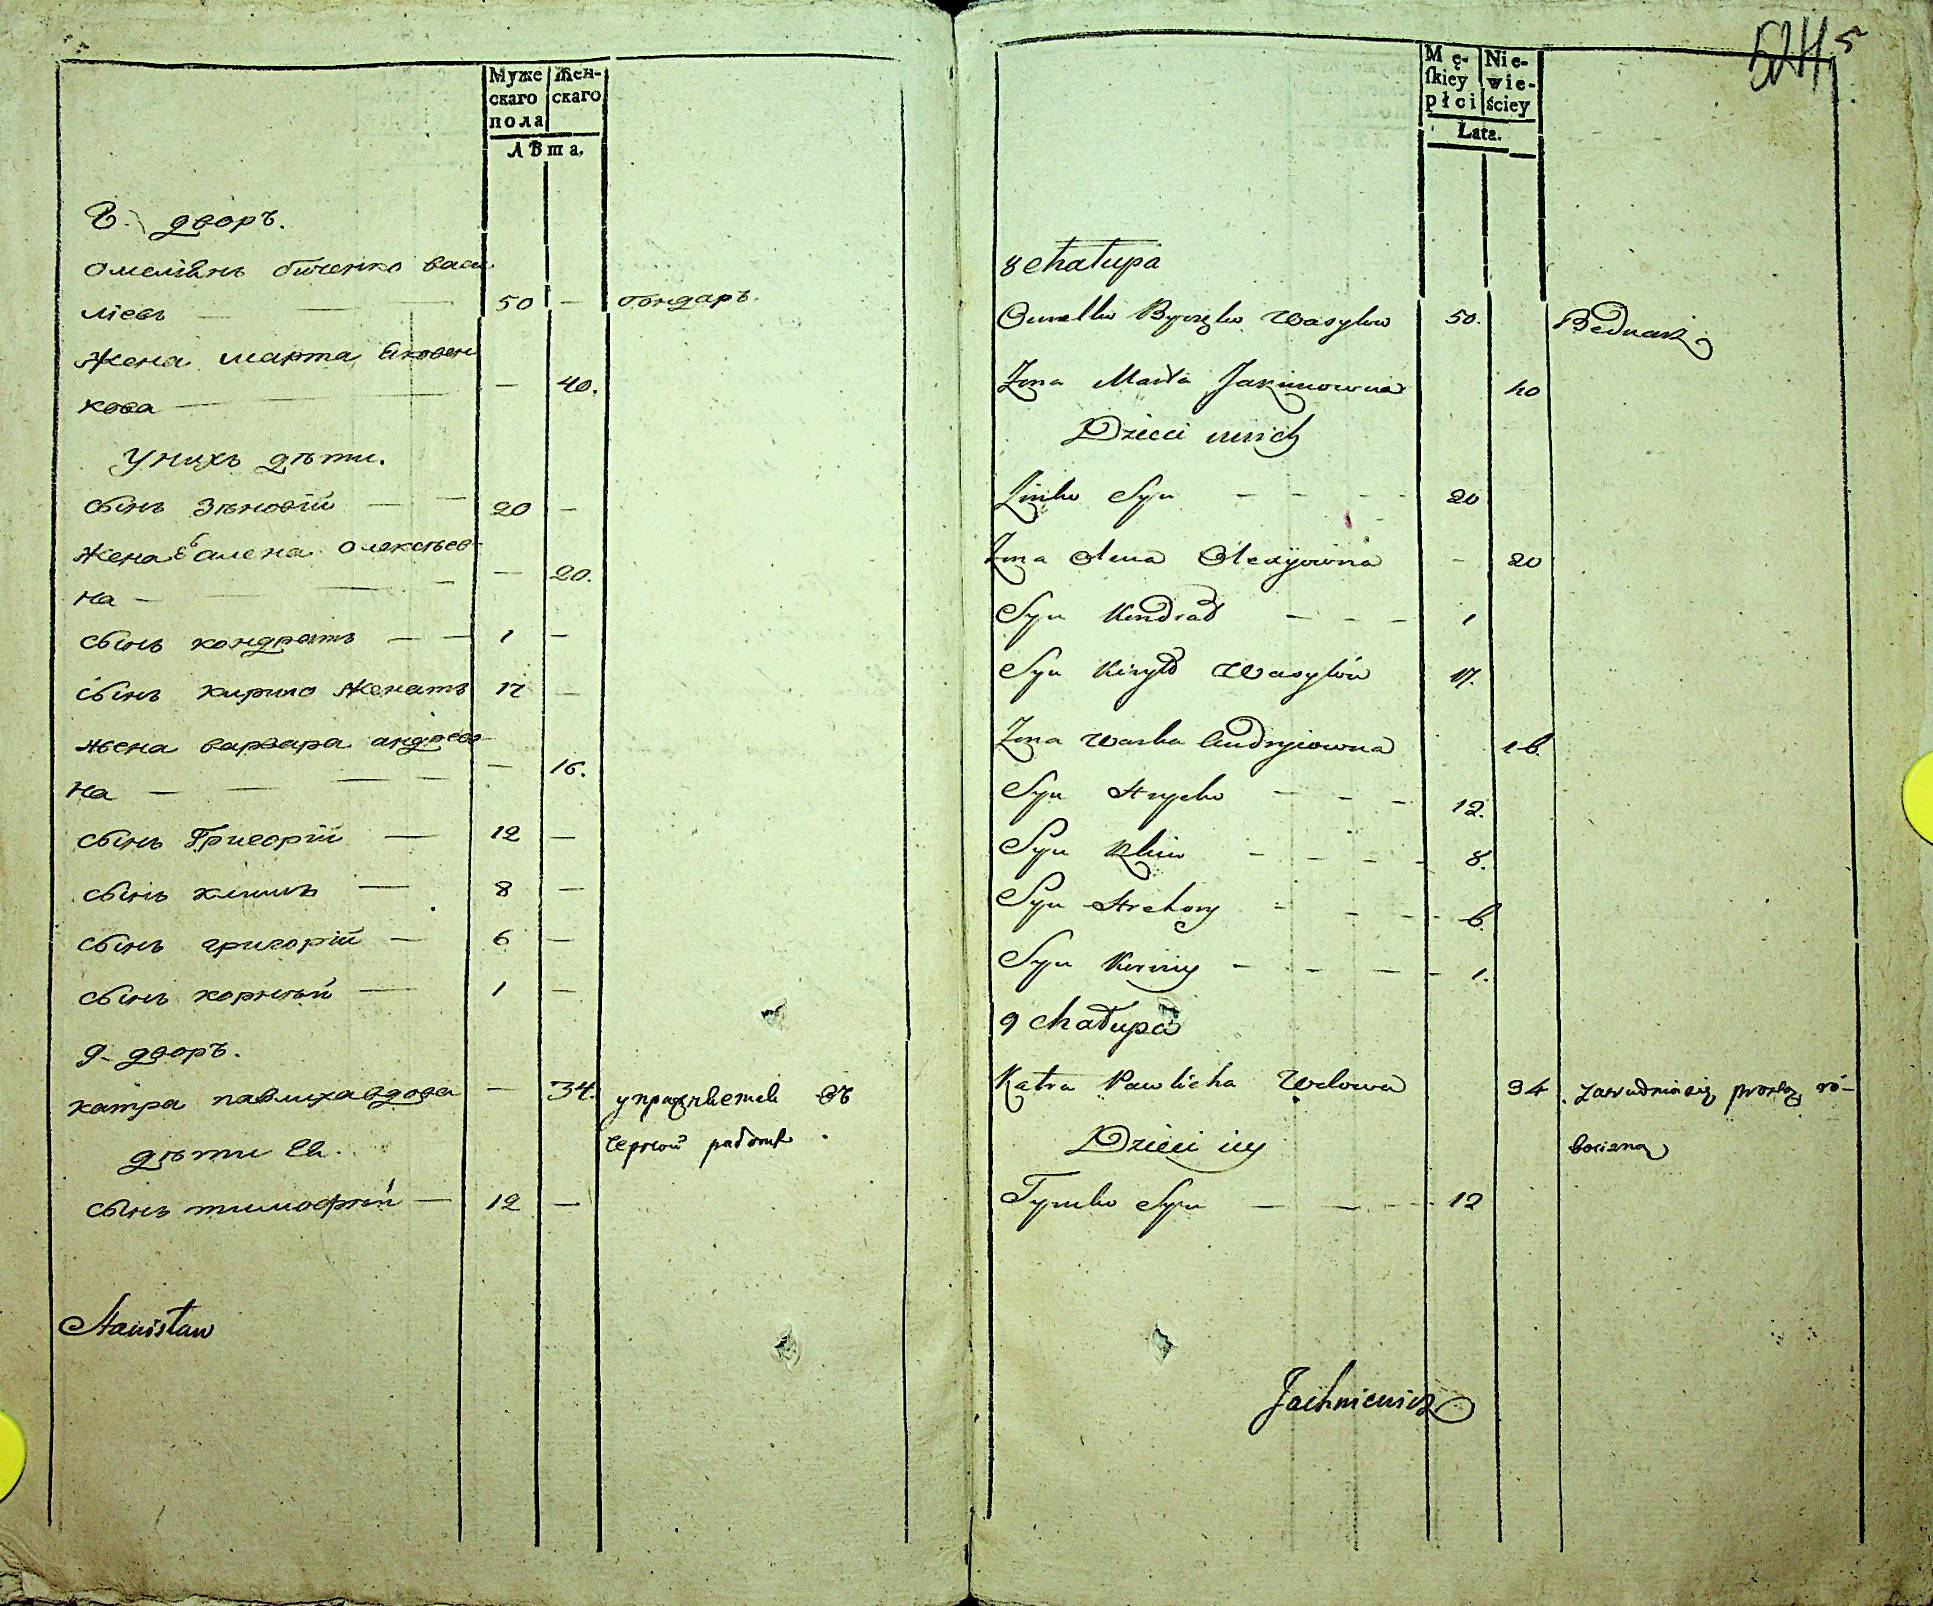 Муже
скаго
пола
Жен-
скаго
Лѣта.
8. дворъ.
Омелiянъ биченко васи
лiевъ — — — 50 — бондаръ.
Жена марта яковен
кова — — — — 40.
У нихъ дѣти.
сынъ Зѣновiй — — 20 —
Жена Ев алена олексѣев
на — — — — — 20.
сынъ кондратъ — — 1 —
сынъ кирило женатъ 17 —
жена варвара андрѣев
на — — — — — 16.
сынъ Григорiй — 12 —
сынъ климъ — 8 —
сынъ григорiй — 6 —
сынъ корнѣй — 1 —
9. дворъ.
катра павлиха вдова — 34. упражняется въ
черной работѣ.
дѣти ея.
сынъ тимофѣй — 12 —
Stanisław
5245
Mę-
ſkiey
płci
Nie-
wie-
ściey
Lata.
8 chałupa
Omelko Byczko Wasylow 50. Bednarz
Zona Marta Jakimowna 40
Dzieci u nich
Zinko Syn - - - - 20
Zona Olena Olexyiowna - 20
Syn Kondrat - - - 1
Syn Kiryło Wasylów 17.
Zona Warka Andryiowna 16.
Syn Hrycko - - - 12.
Syn Klim - - - - 8.
Syn Hrehory - - - 6.
Syn Korniy - - - - 1.
9 chałupa
Katra Pawlicha Wdowa 34. zatrudnia się prostą ro-
bocizną
Dzieci iey
Tymko Syn — — - - 12
Jachniewicz